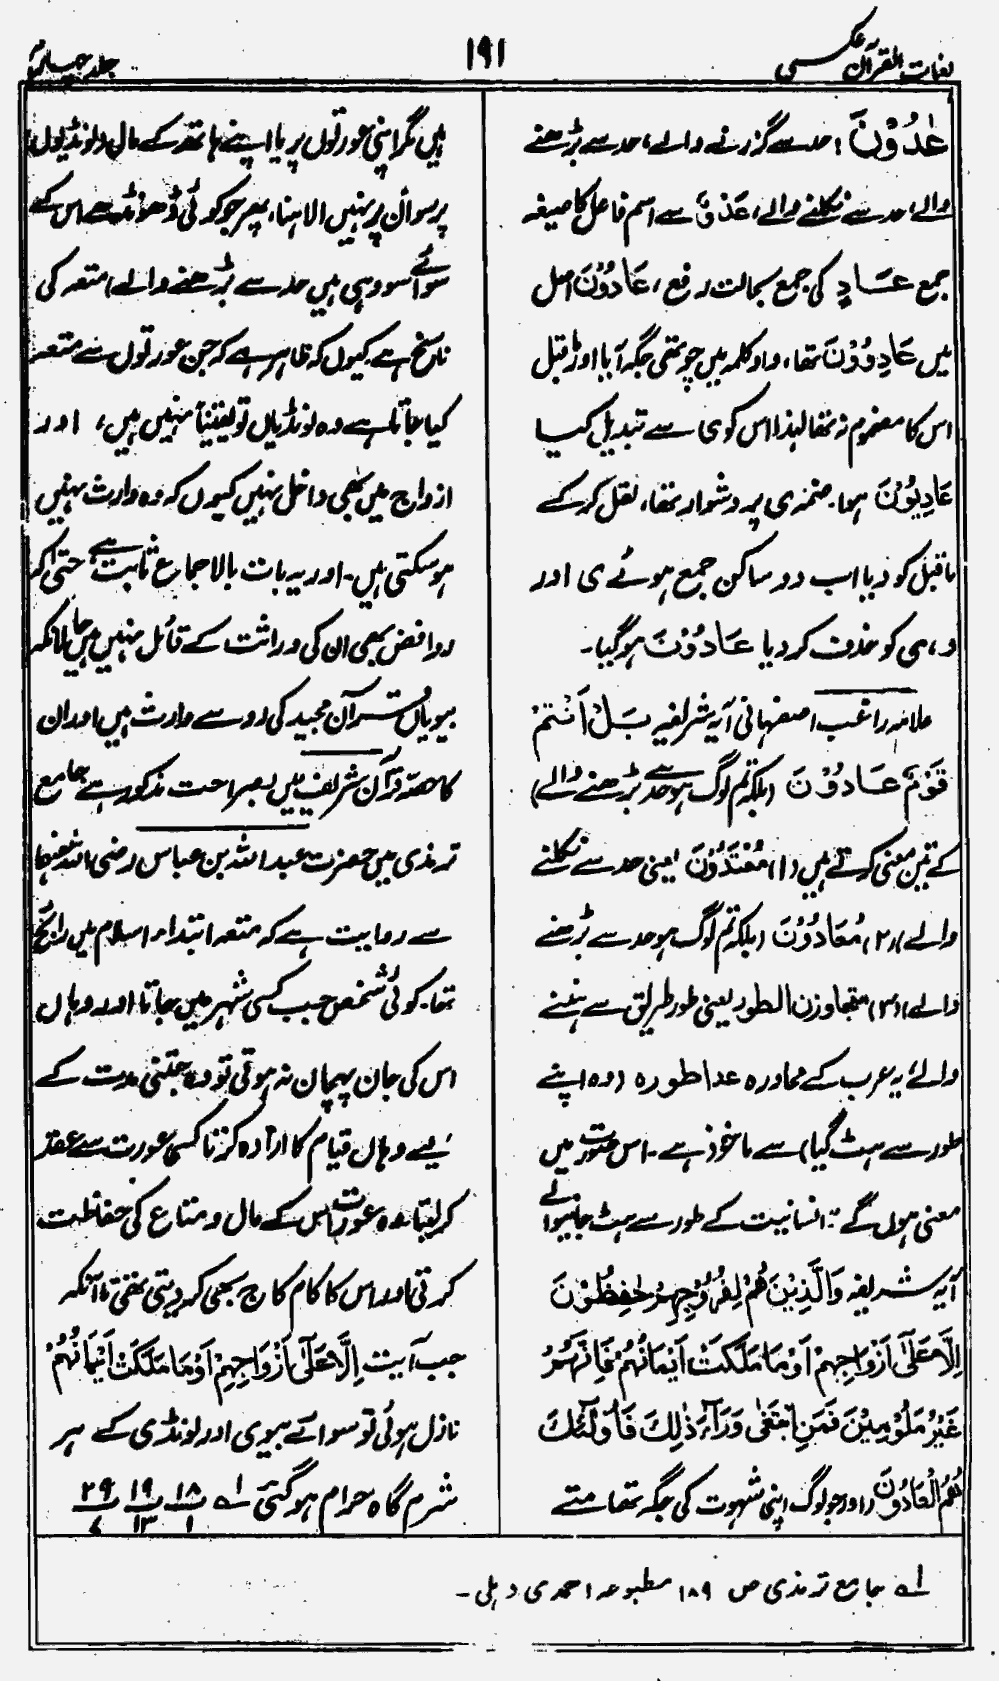 لغات القرآن عکسی
۱۹۱
جلد چہارم
عٰدُوْنَ: حد سے گزرنے والے، حد سے بڑھنے
والے، حد سے نکلنے والے، عَدْوٌ سے اسم فاعل کا صیغہ
جمع عَادٍ کی جمع بحالت رفع، عَادُوْنَ اصل
میں عَادِوُوْنَ تھا، واو کلمہ میں چوتھی جگہ آیا اور ماقبل
اس کا مضموم نہ تھا لہٰذا اس کو ی سے تبدیل کیا
عَادِیُوْنَ ہوا۔ ضمہ ی پر دشوار تھا، نقل کر کے
ماقبل کو دیا اب دو ساکن جمع ہوئے ی اور
و، ی کو حذف کر دیا عَادُوْنَ ہو گیا۔
علامہ راغب اصفہانی آیہ شریفہ بَلْ اَنْتُمْ
قَوْمٌ عَادُوْنَ (بلکہ تم لوگ ہو حد سے بڑھنے والے)
کے تین معنی کرتے ہیں (۱) مُعْتَدُوْنَ یعنی حد سے نکلنے
والے (۲) مُعَادُوْنَ (بلکہ تم لوگ ہو حد سے بڑھنے
والے) (۳) متجاوزن الطور یعنی طور طریق سے ہٹنے
والے یہ عرب کے محاورہ عدا طورہ (وہ اپنے
طور سے ہٹ گیا) سے ماخوذ ہے۔ اس صورت میں
معنی ہوں گے: انسانیت کے طور سے ہٹ جانیوالے
آیہ شریفہ وَالَّذِیْنَ ھُمْ لِفُرُوْجِہِمْ حٰفِظُوْنَ
اِلَّا عَلٰٓی اَزْوَاجِہِمْ اَوْ مَا مَلَکَتْ اَیْمَانُہُمْ فَاِنَّہُمْ
غَیْرُ مَلُوْمِیْنَ فَمَنِ ابْتَغٰی وَرَآءَ ذٰلِکَ فَاُولٰٓئِکَ
ھُمُ الْعَادُوْنَ (اور جو لوگ اپنی شہوت کی جگہ تھامتے
ہیں مگر اپنی عورتوں پر یا اپنے ہاتھ کے مال (لونڈیوں)
پر سو اُن پر نہیں الاہنا، پھر جو کوئی ڈھونڈھے اس کے
سوائے سو وہی ہیں حد سے بڑھنے والے) متعہ کی
ناسخ ہے کیوں کہ ظاہر ہے کہ جن عورتوں سے متعہ
کیا جاتا ہے وہ لونڈیاں تو یقیناً نہیں ہیں، اور
ازواج میں بھی داخل نہیں کیوں کہ وہ وارث نہیں
ہو سکتی ہیں۔ اور یہ بات بالاجماع ثابت ہے، حتیٰ کہ
روافض بھی ان کی وراثت کے قائل نہیں ہیں حالانکہ
بیویاں قرآن مجید کی رو سے وارث ہیں اور ان
کا حصہ قرآن شریف میں بصراحت مذکور ہے جامع
ترمذی میں حضرت عبد اللہ بن عباس رضی اللہ عنہما
سے روایت ہے کہ متعہ ابتداء اسلام میں رائج
تھا۔ کوئی شخص جب کسی شہر میں جاتا اور وہاں
اس کی جان پہچان نہ ہوتی تو وہ جتنی مدت کے
لیے وہاں قیام کا ارادہ کرتا کسی عورت سے عقد
کر لیتا وہ عورت اس کے مال و متاع کی حفاظت
کرتی اور اس کا کام کاج بھی کر دیتی تھی تا آنکہ
جب آیت اِلَّا عَلٰٓی اَزْوَاجِہِمْ اَوْ مَا مَلَکَتْ اَیْمَانُہُمْ
نازل ہوئی تو سوائے بیوی اور لونڈی کے ہر
شرم گاہ حرام ہو گئی ؎۱ ۱۸/۱ ۱۹/۱۳ ۲۹/۷
؎۱ جامع ترمذی ص ۱۸۹ مطبوعہ احمدی دہلی۔